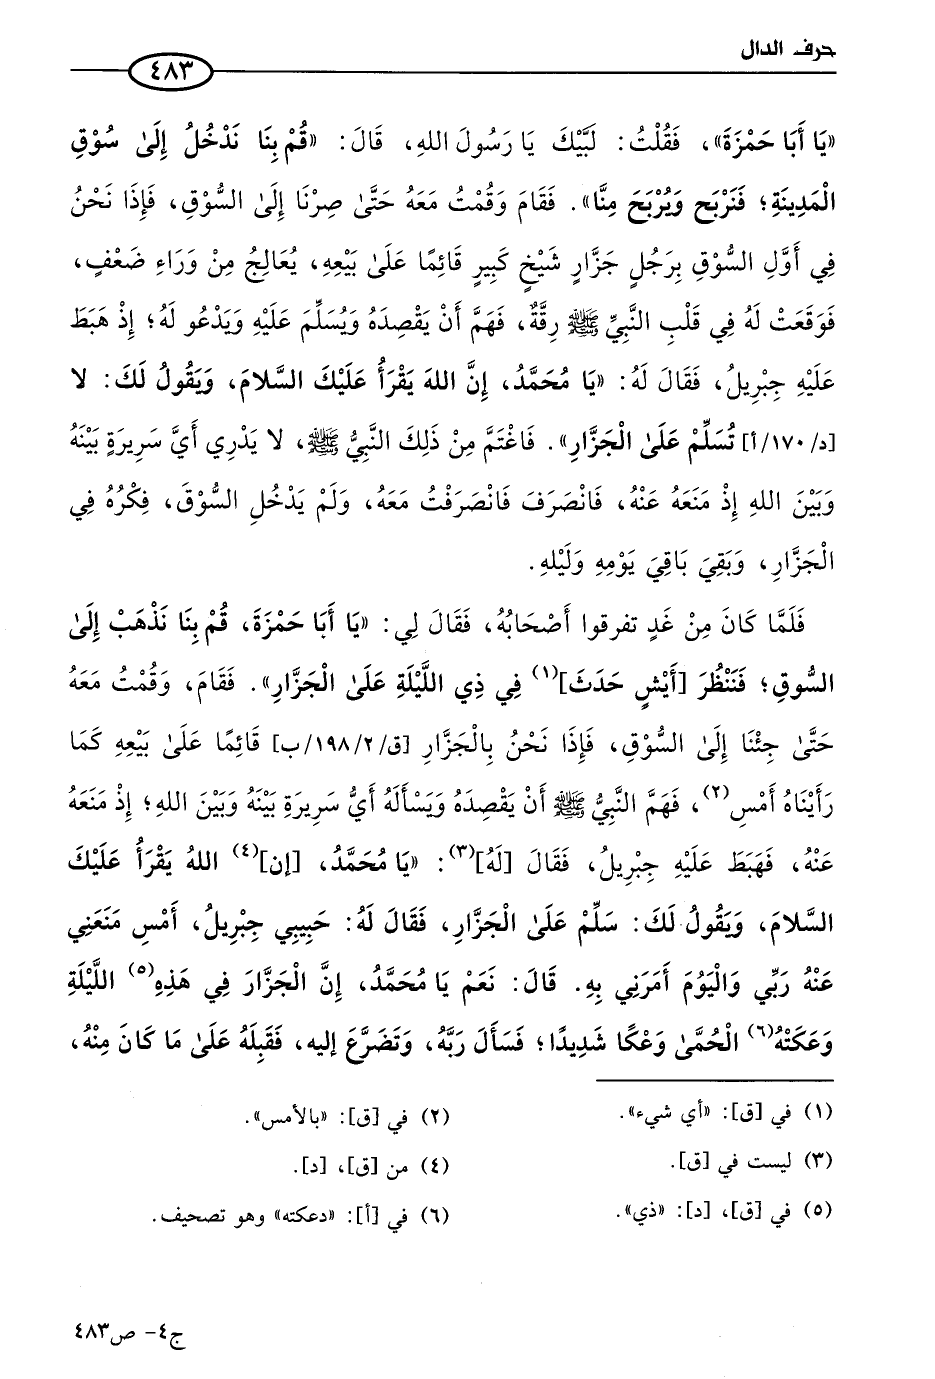 حرف الدال
٤٨٣
«يَا أَبَا حَمْزَةَ»، فَقُلْتُ: لَبَّيْكَ يَا رَسُولَ اللهِ، قَالَ: «قُمْ بِنَا نَدْخُلُ إِلَىٰ سُوْقِ
الْمَدِينَةِ؛ فَنَرْبَح وَيُرْبَحَ مِنَّا». فَقَامَ وَقُمْتُ مَعَهُ حَتَّىٰ صِرْنَا إِلَىٰ السُّوْقِ، فَإِذَا نَحْنُ
فِي أَوَّلِ السُّوْقِ بِرَجُلٍ جَزَّارٍ شَيْخٍ كَبِيرٍ قَائِمًا عَلَىٰ بَيْعِهِ، يُعَالِجُ مِنْ وَرَاءِ ضَعْفٍ،
فَوَقَعَتْ لَهُ فِي قَلْبِ النَّبِيِّ ﷺ رِقَّةٌ، فَهَمَّ أَنْ يَقْصِدَهُ وَيُسَلِّمَ عَلَيْهِ وَيَدْعُو لَهُ؛ إِذْ هَبَطَ
عَلَيْهِ جِبْرِيلُ، فَقَالَ لَهُ: «يَا مُحَمَّدُ، إِنَّ اللهَ يَقْرَأُ عَلَيْكَ السَّلامَ، وَيَقُولُ لَكَ: لا
[د/١٧٠/أ] تُسَلِّمْ عَلَىٰ الْجَزَّارِ». فَاغْتَمَّ مِنْ ذَلِكَ النَّبِيُّ ﷺ، لا يَدْرِي أَيَّ سَرِيرَةٍ بَيْنَهُ
وَبَيْنَ اللهِ إِذْ مَنَعَهُ عَنْهُ، فَانْصَرَفَ فَانْصَرَفْتُ مَعَهُ، وَلَمْ يَدْخُلِ السُّوْقَ، فِكْرُهُ فِي
الْجَزَّارِ، وَبَقِيَ بَاقِيَ يَوْمِهِ وَلَيْلهِ.
فَلَمَّا كَانَ مِنْ غَدٍ تفرقوا أَصْحَابُهُ، فَقَالَ لِي: «يَا أَبَا حَمْزَةَ، قُمْ بِنَا نَذْهَبْ إِلَىٰ
السُّوقِ؛ فَنَنْظُرَ [أَيْشٍ حَدَثَ](١) فِي ذِي اللَّيْلَةِ عَلَىٰ الْجَزَّارِ». فَقَامَ، وَقُمْتُ مَعَهُ
حَتَّىٰ جِئْنَا إِلَىٰ السُّوْقِ، فَإِذَا نَحْنُ بِالْجَزَّارِ [ق/١٩٨/٢/ب] قَائِمًا عَلَىٰ بَيْعِهِ كَمَا
رَأَيْنَاهُ أَمْسِ(٢)، فَهَمَّ النَّبِيُّ ﷺ أَنْ يَقْصِدَهُ وَيَسْأَلَهُ أَيُّ سَرِيرَةٍ بَيْنَهُ وَبَيْنَ اللهِ؛ إِذْ مَنَعَهُ
عَنْهُ، فَهَبَطَ عَلَيْهِ جِبْرِيلُ، فَقَالَ [لَهُ](٣): «يَا مُحَمَّدُ، [إن](٤) اللهُ يَقْرَأُ عَلَيْكَ
السَّلامَ، وَيَقُولُ لَكَ: سَلِّمْ عَلَىٰ الْجَزَّارِ، فَقَالَ لَهُ: حَبِيبِي جِبْرِيلُ، أَمْسِ مَنَعَنِي
عَنْهُ رَبِّي وَالْيَوْمَ أَمَرَنِي بِهِ. قَالَ: نَعَمْ يَا مُحَمَّدُ، إِنَّ الْجَزَّارَ فِي هَذِهِ(٥) اللَّيْلَةِ
وَعَكَتْهُ(٦) الْحُمَّىٰ وَعْكًا شَدِيدًا؛ فَسَأَلَ رَبَّهُ، وَتَضَرَّعَ إليه، فَقَبِلَهُ عَلَىٰ مَا كَانَ مِنْهُ،
(١) في [ق]: «أي شيء».
(٢) في [ق]: «بالأمس».
(٣) ليست في [ق].
(٤) من [ق]، [د].
(٥) في [ق]، [د]: «ذي».
(٦) في [أ]: «دعكته» وهو تصحيف.
ج٤- ص٤٨٣